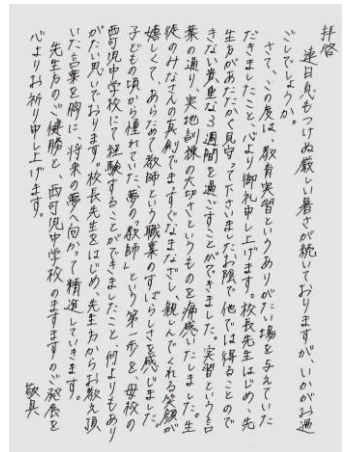 拝啓
連日息もつけぬ厳しい暑さが続いておりますが、いかがお過
ごしでしょうか。
さて、この度は、教育実習というありがたい場を与えていた
だきましたこと、心より御礼申し上げます。校長先生はじめ、先
生方があたたかく見守って下さいましたお陰で、他では得ることので
きない貴重な3週間を過ごすことができました。実習という言
葉の通り、実地訓練の大切さというものを痛感いたしました。生
徒のみなさんの真剣でまっすぐなまなざし、親しんでくれる笑顔が
嬉しくて、あらためて教師という職業のすばらしさを感じました。
子どもの頃から憧れていた夢の「教師」という第一歩を母校の
西可児中学校にて経験することができましたこと、何よりもあり
がたい思いでおります。校長先生をはじめ、先生方からお教え頂
いた言葉を胸に、将来の夢へ向かって精進していきます。
先生方のご健勝と、西可児中学校のますますのご発展を
心よりお祈り申し上げます。
敬具